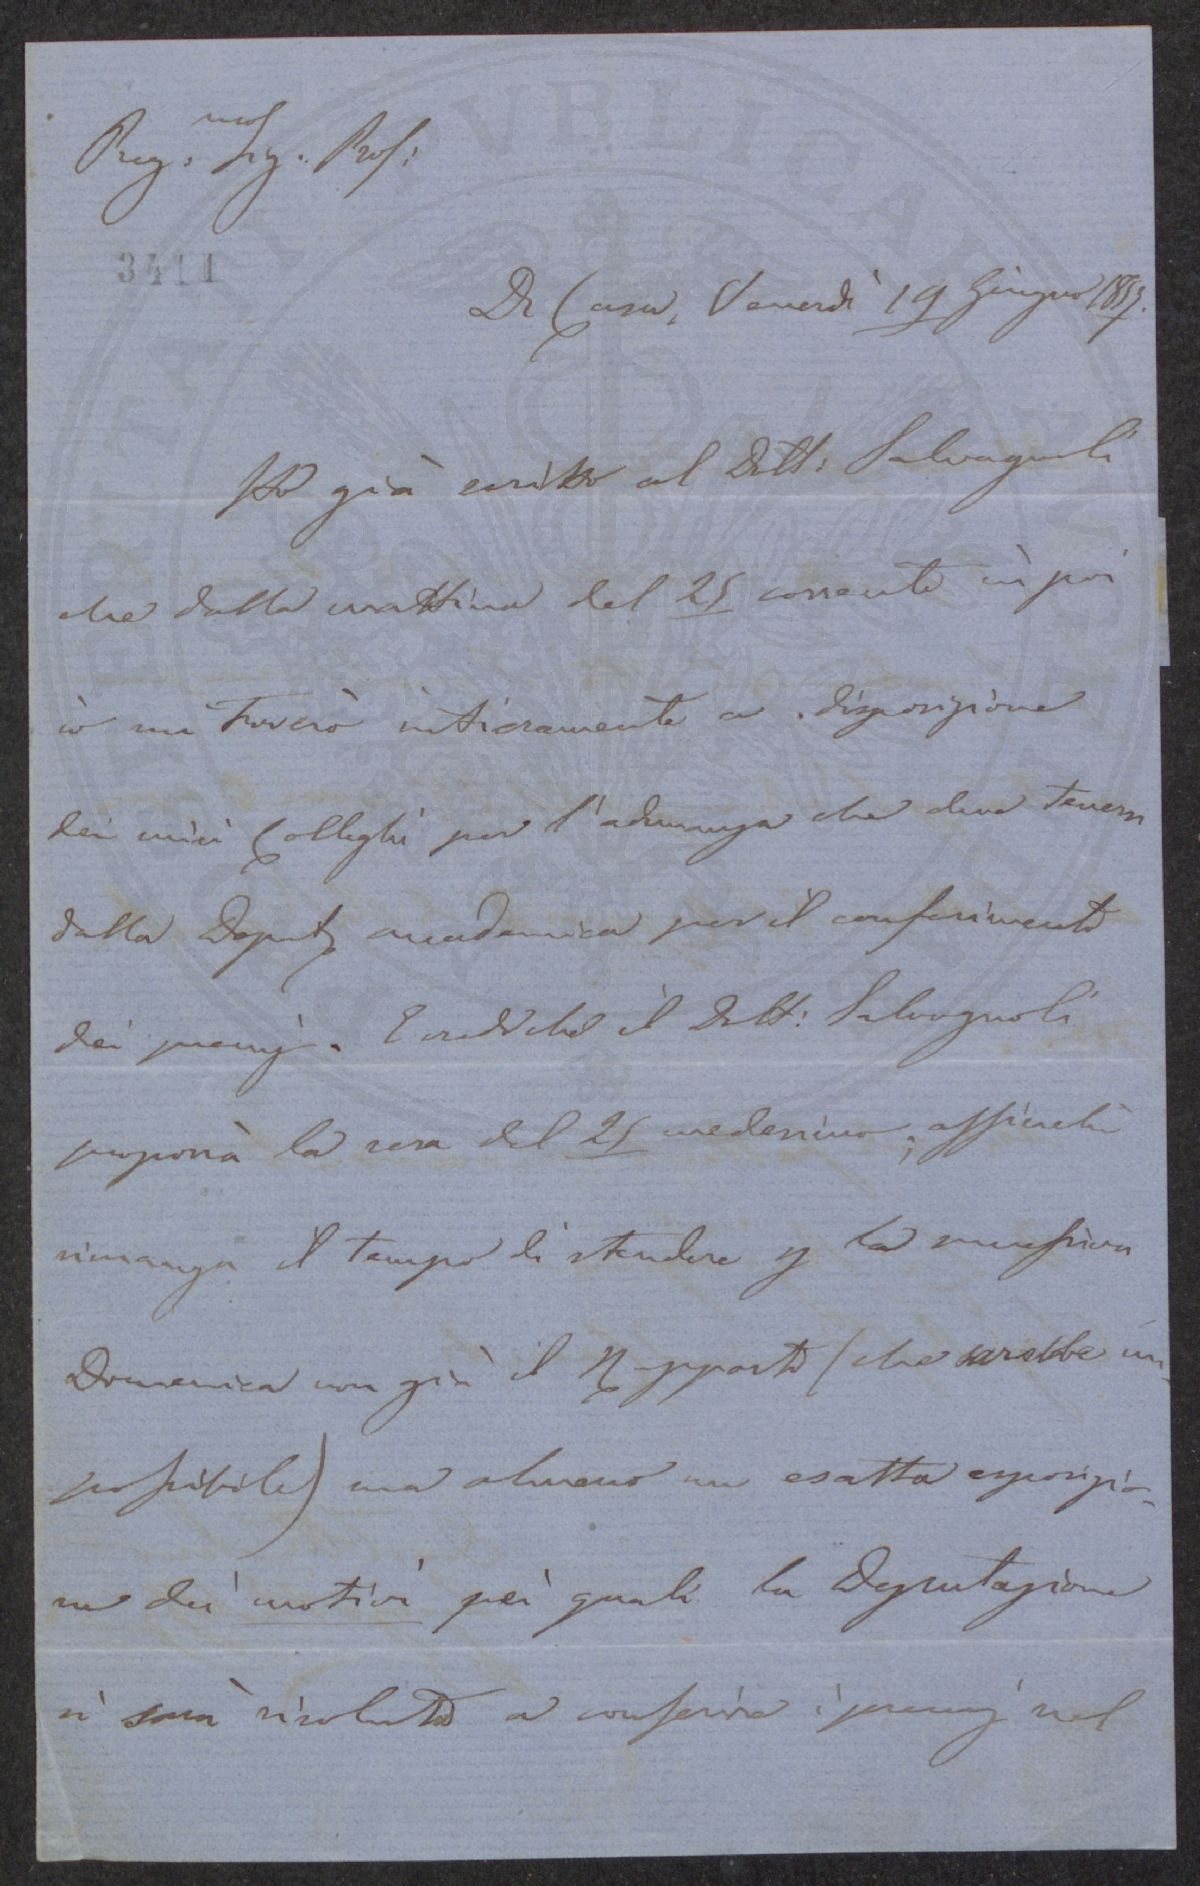 Preg.mo Sig. Prof:
3411
Di Casa, Venerdì 19 Giugno 1857.
Ho già scritto al Dott: Salvagnoli
che dalla mattina del 25 corrente in poi
io mi troverò intieramente a disposizione
dei miei Colleghi per l'adunanza che deve tenersi
dalla Deputaz accademica per il conferimento
dei premj. E credo che il Dott: Salvagnoli
proporrà la sera del 25 medesimo, affinchè
rimanga il tempo di stendere p la successiva
Domenica non già il Rapporto (che sarebbe im-
possibile) ma almeno un esatta esposizio-
ne dei motivi pei quali la Deputazione
si sarà risoluta a conferire i premj nel